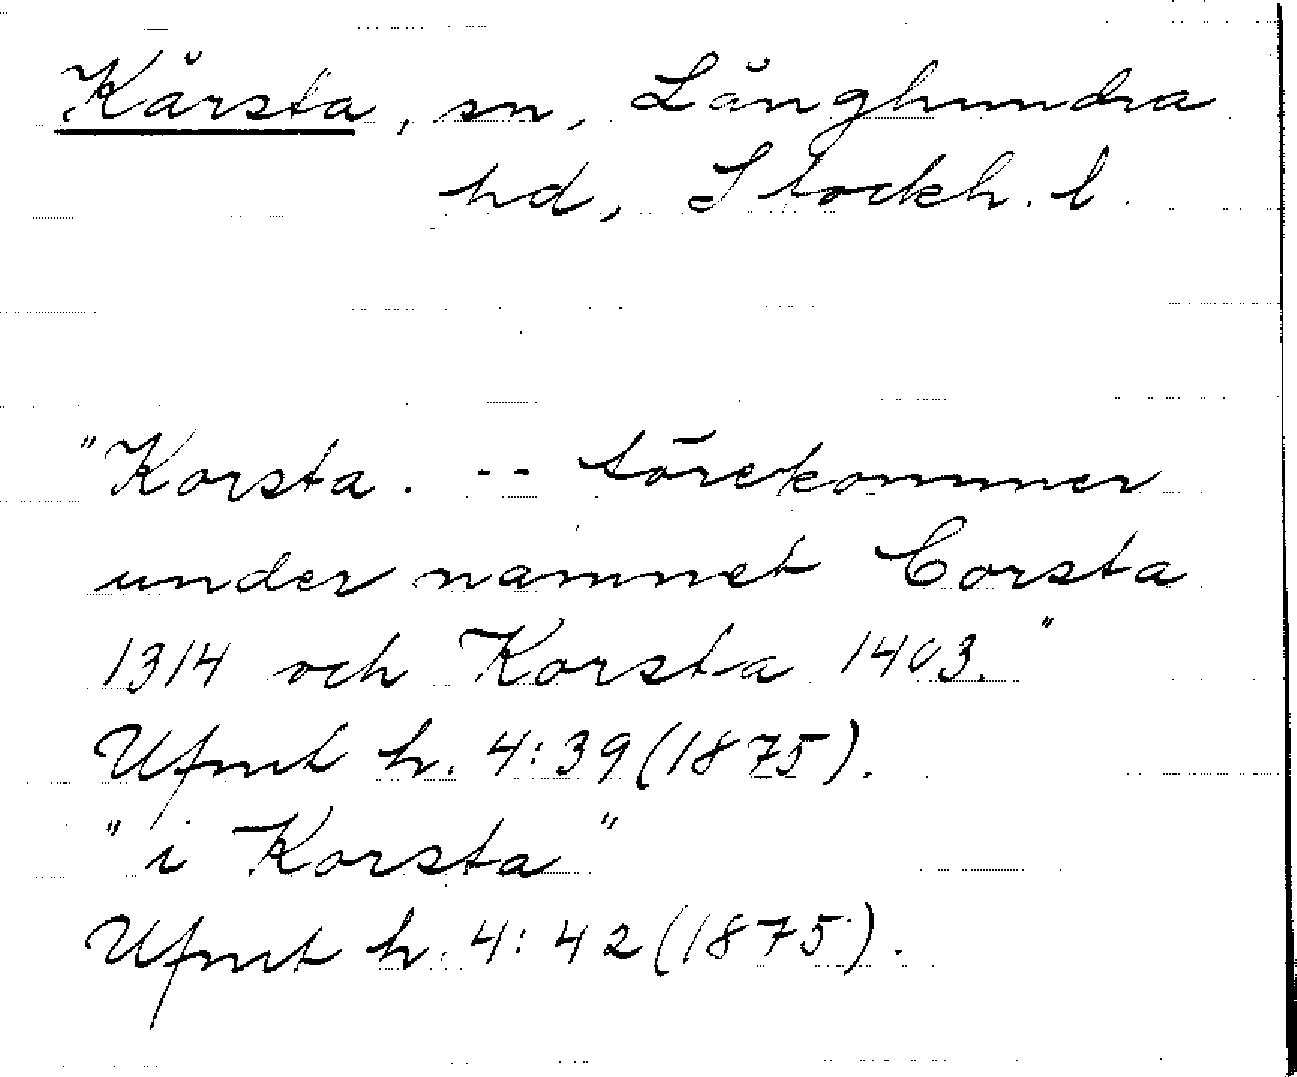 Kårsta, sn, Långhundra
hd, Stockh. l.
"Korsta. -- förekommer
under namnet Corsta
1314 och Korsta 1403."
Ufmt h. 4:39(1875).
"i Korsta"
Ufmt h. 4:42(1875).